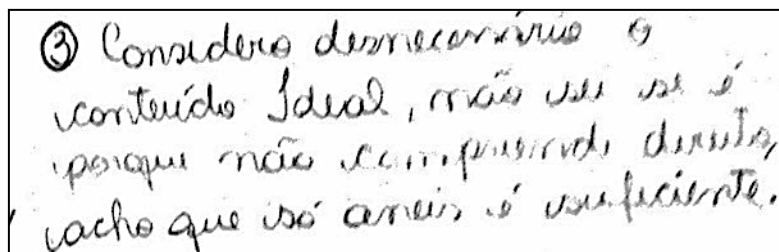 ③ Considero desnecessário o
conteúdo Ideal, não sei se é
porque não compreendi direito,
acho que só aneis é suficiente.